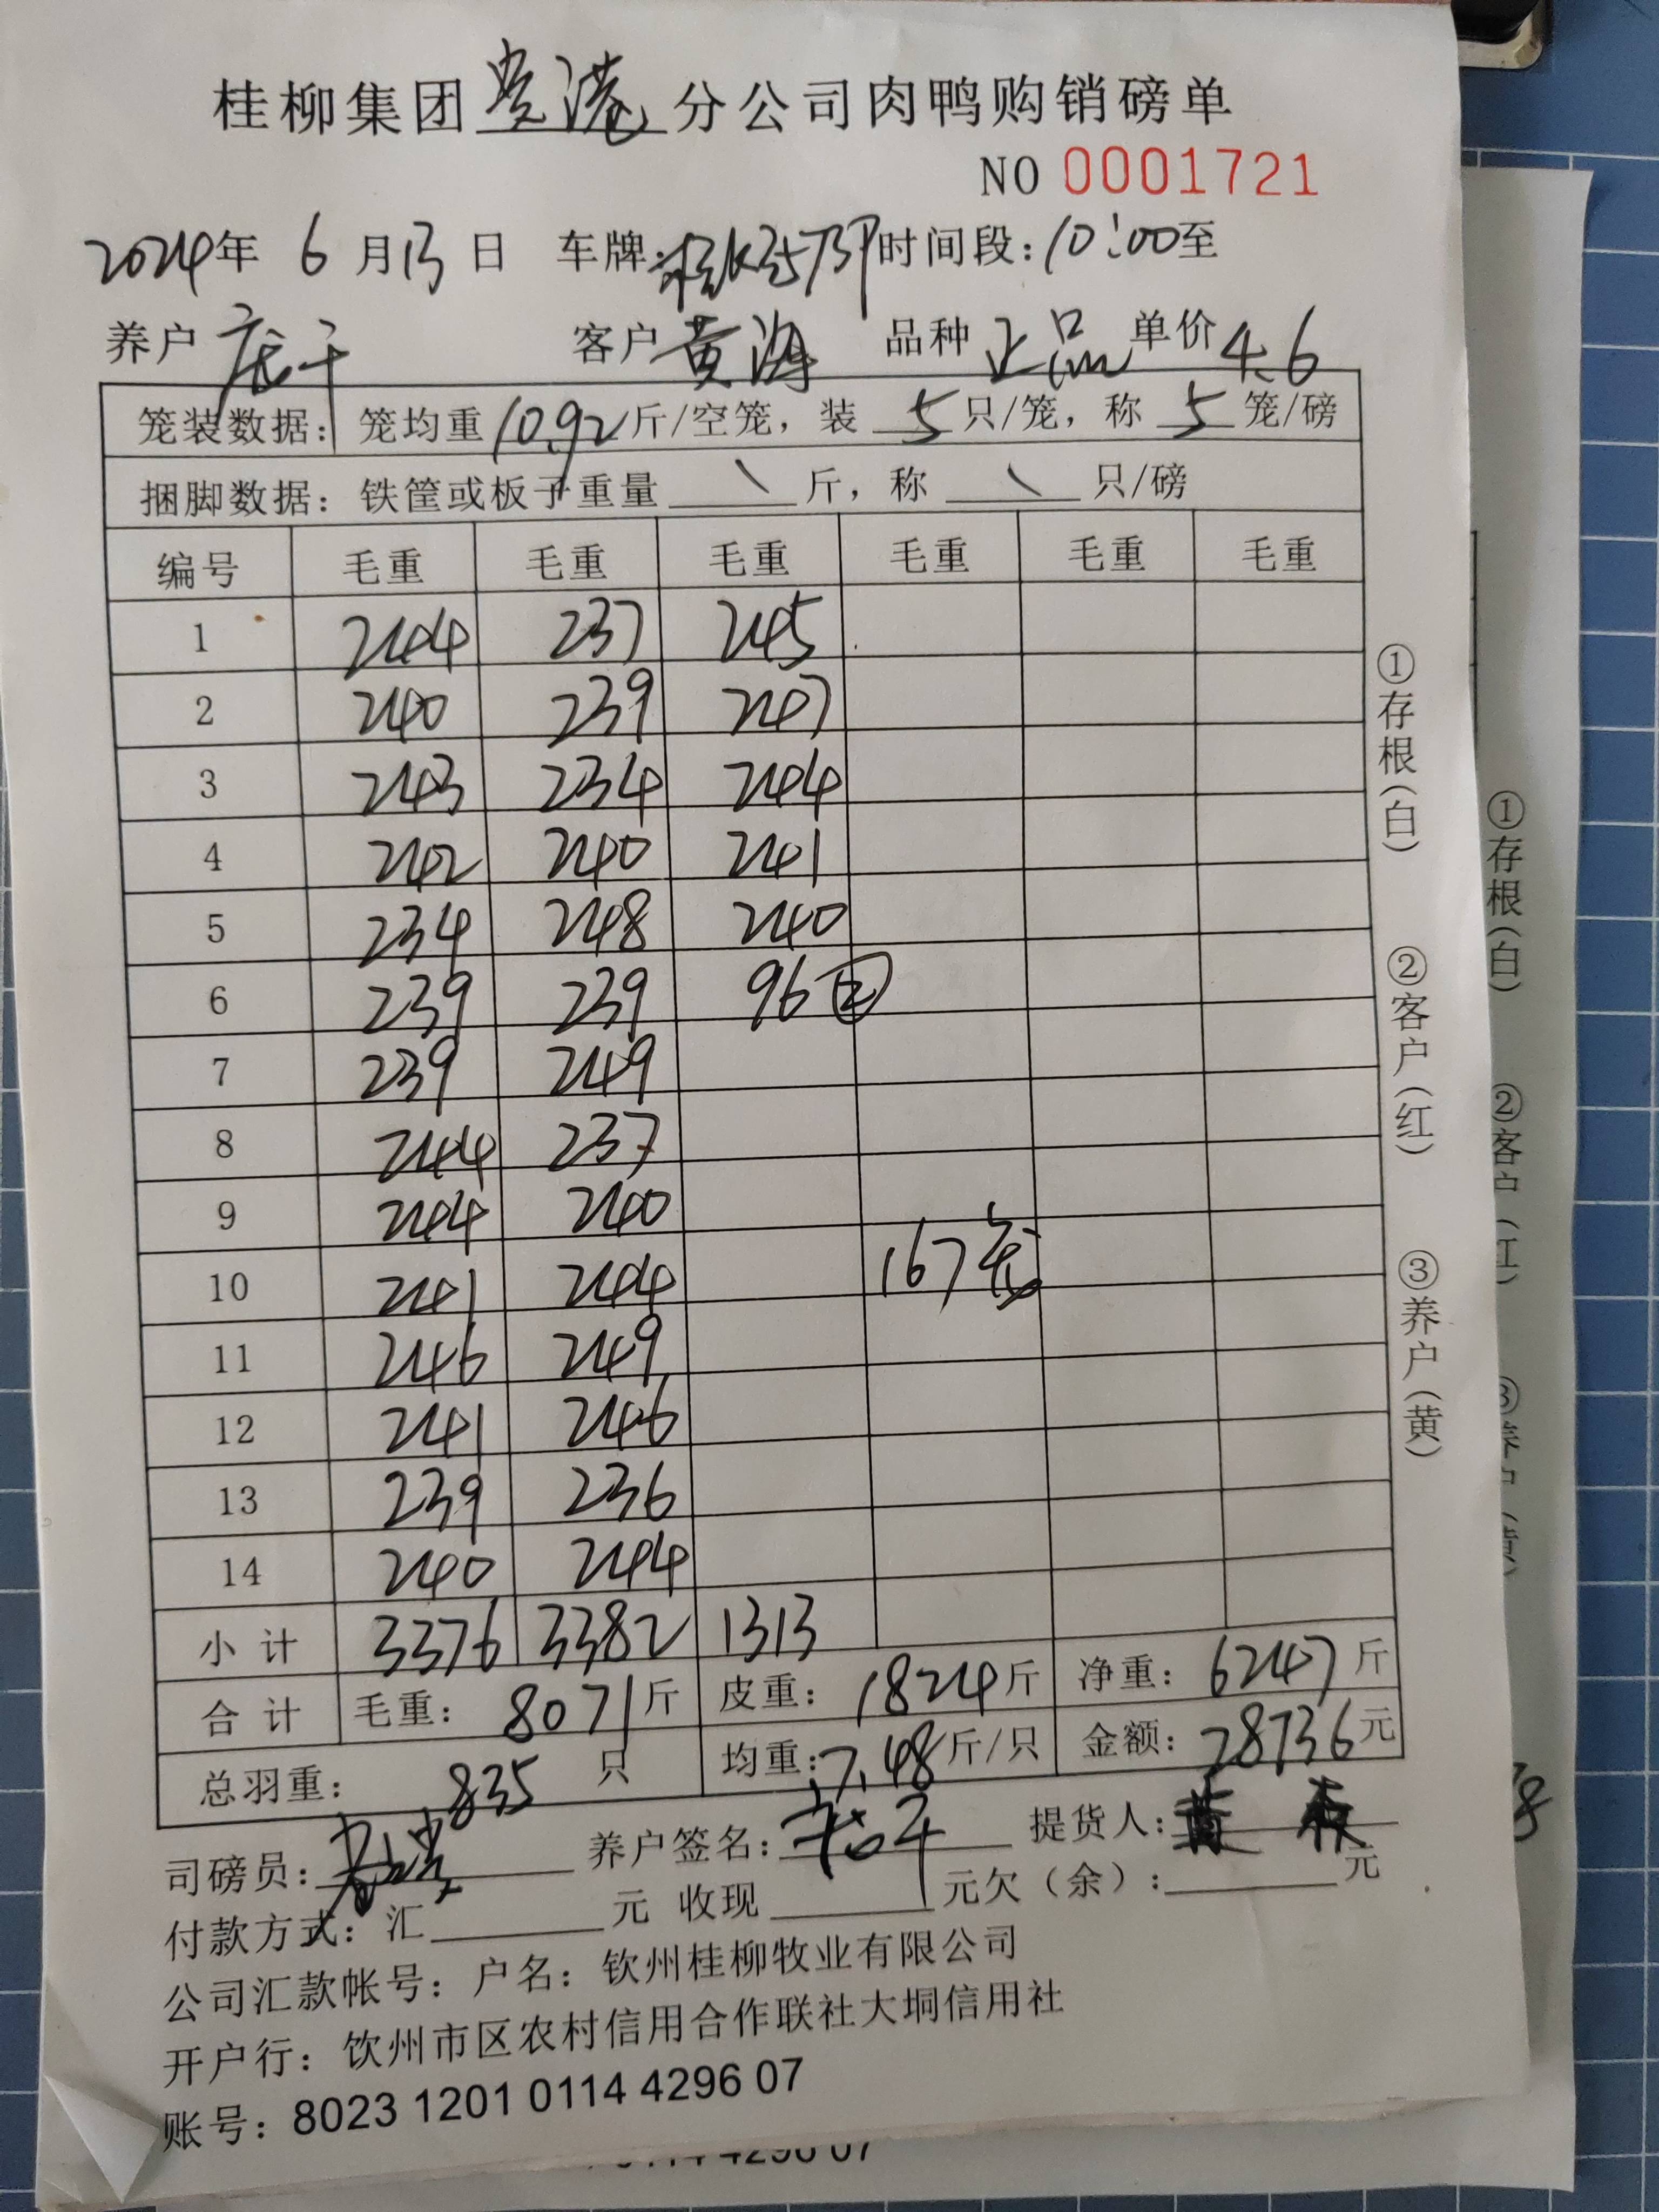 桂柳集团贵港分公司肉鸭购销磅单
NO 0001721
2024年 6月13日 车牌: 时间段:10:00至
养户 客户 黄海 品种 正品 单价 4.6
笼装数据: 笼均重10.92斤/空笼, 装 5 只/笼, 称 5 笼/磅
捆脚数据: 铁筐或板子重量 \ 斤, 称 \ 只/磅
编号 毛重 毛重 毛重 毛重 毛重 毛重
1 244 237 245
2 240 239 247
3 243 234 244
4 242 240 241
5 234 248 240
6 239 239 96 ②
7 239 249
8 244 237
9 244 240
10 241 244 167笼
11 246 249
12 241 246
13 239 236
14 240 244
小计 3376 3382 1313
合计 毛重: 8071斤 皮重: 1824斤 净重: 6247斤
总羽重: 835 只 均重:7.48斤/只 金额: 28736元
司磅员: 养户签名: 提货人:
付款方式: 汇 元 收现 元欠(余): 元
公司汇款帐号: 户名: 钦州桂柳牧业有限公司
开户行: 钦州市区农村信用合作联社大垌信用社
账号: 8023 1201 0114 4296 07
①存根(白) ②客户(红) ③养户(黄)
①存根(白)
②客户(红)